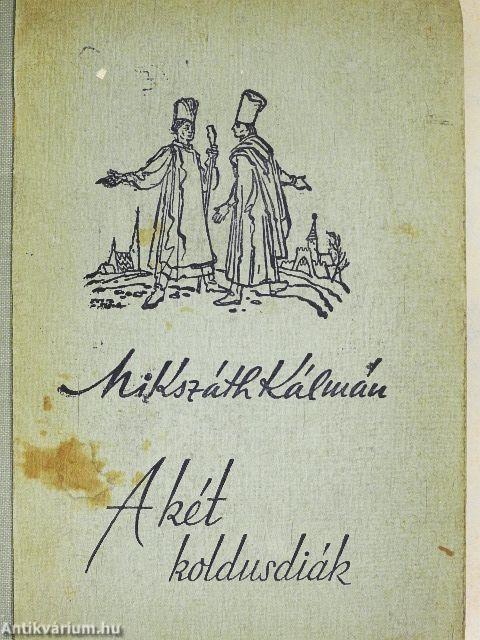 Mikszáth Kálmán
A két
koldusdiák
Antikvárium.hu